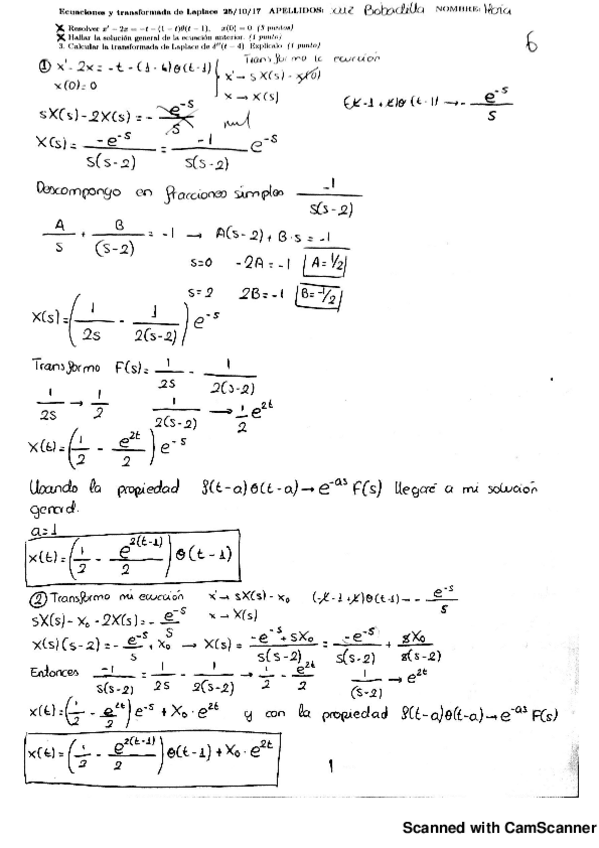 Ecuaciones y transformada de Laplace 25/10/17 APELLIDOS: Bobadilla NOMBRE:
Resolver x' − 2x = −t − (1 − t)θ(t − 1), x(0) = 0 (5 puntos)
Hallar la solución general de la ecuación anterior. (1 punto)
3. Calcular la transformada de Laplace de δ''(t − 4) Explicalo (1 punto)
6
① x' - 2x = -t - (1 - t)θ(t-1) Transformo la ecuación
x(0)=0 x' → sX(s) - x(0)
x → X(s)
sX(s) - 2X(s) = - e^-s/s mal (t-1+t)θ(t-1) → - e^-s/s
X(s) = -e^-s/s(s-2) = -1/s(s-2) e^-s
Descompongo en fracciones simples -1/s(s-2)
A/s + B/(s-2) = -1 → A(s-2) + B·s = -1
s=0 -2A = -1 A=1/2
s=2 2B = -1 B=-1/2
X(s) = (1/2s - 1/2(s-2)) e^-s
Transformo F(s) = 1/2s - 1/2(s-2)
1/2s → 1/2 1/2(s-2) → 1/2 e^2t
X(t) = (1/2 - e^2t/2) e^-s
Usando la propiedad f(t-a)θ(t-a) → e^-as F(s) llegaré a mi solución
general.
a=1
x(t) = (1/2 - e^2(t-1)/2) θ(t-1)
② Transformo mi ecuación x' → sX(s) - x₀ (-t-1+t)θ(t-1) → - e^-s/s
sX(s) - x₀ - 2X(s) = - e^-s/s x → X(s)
X(s)(s-2) = - e^-s/s + x₀ → X(s) = -e^-s + sX₀/s(s-2) = -e^-s/s(s-2) + sX₀/s(s-2)
Entonces -1/s(s-2) = 1/2s - 1/2(s-2) → 1/2 - e^2t/2 1/(s-2) → e^2t
x(t) = (1/2 - e^2t/2) e^-s + X₀ · e^2t y con la propiedad f(t-a)θ(t-a) → e^-as F(s)
x(t) = (1/2 - e^2(t-1)/2) θ(t-1) + X₀ · e^2t
1
Scanned with CamScanner